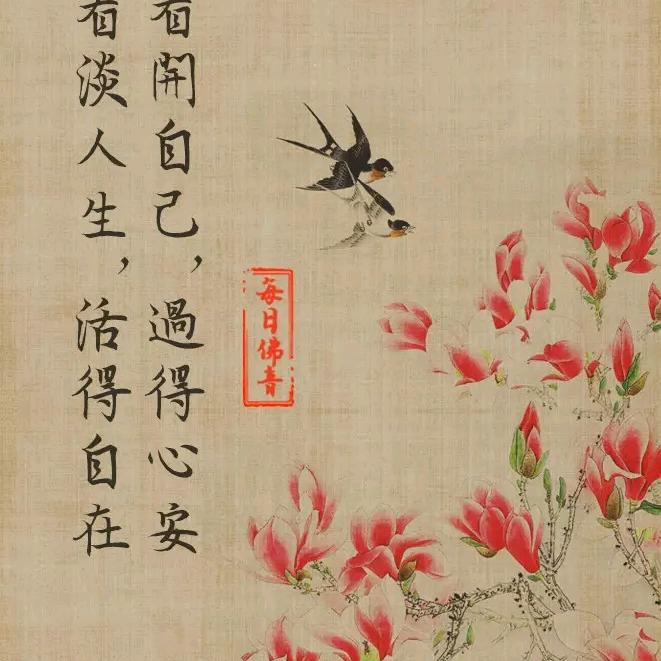 開自己，過得心安
淡人生，活得自在
每日佛音